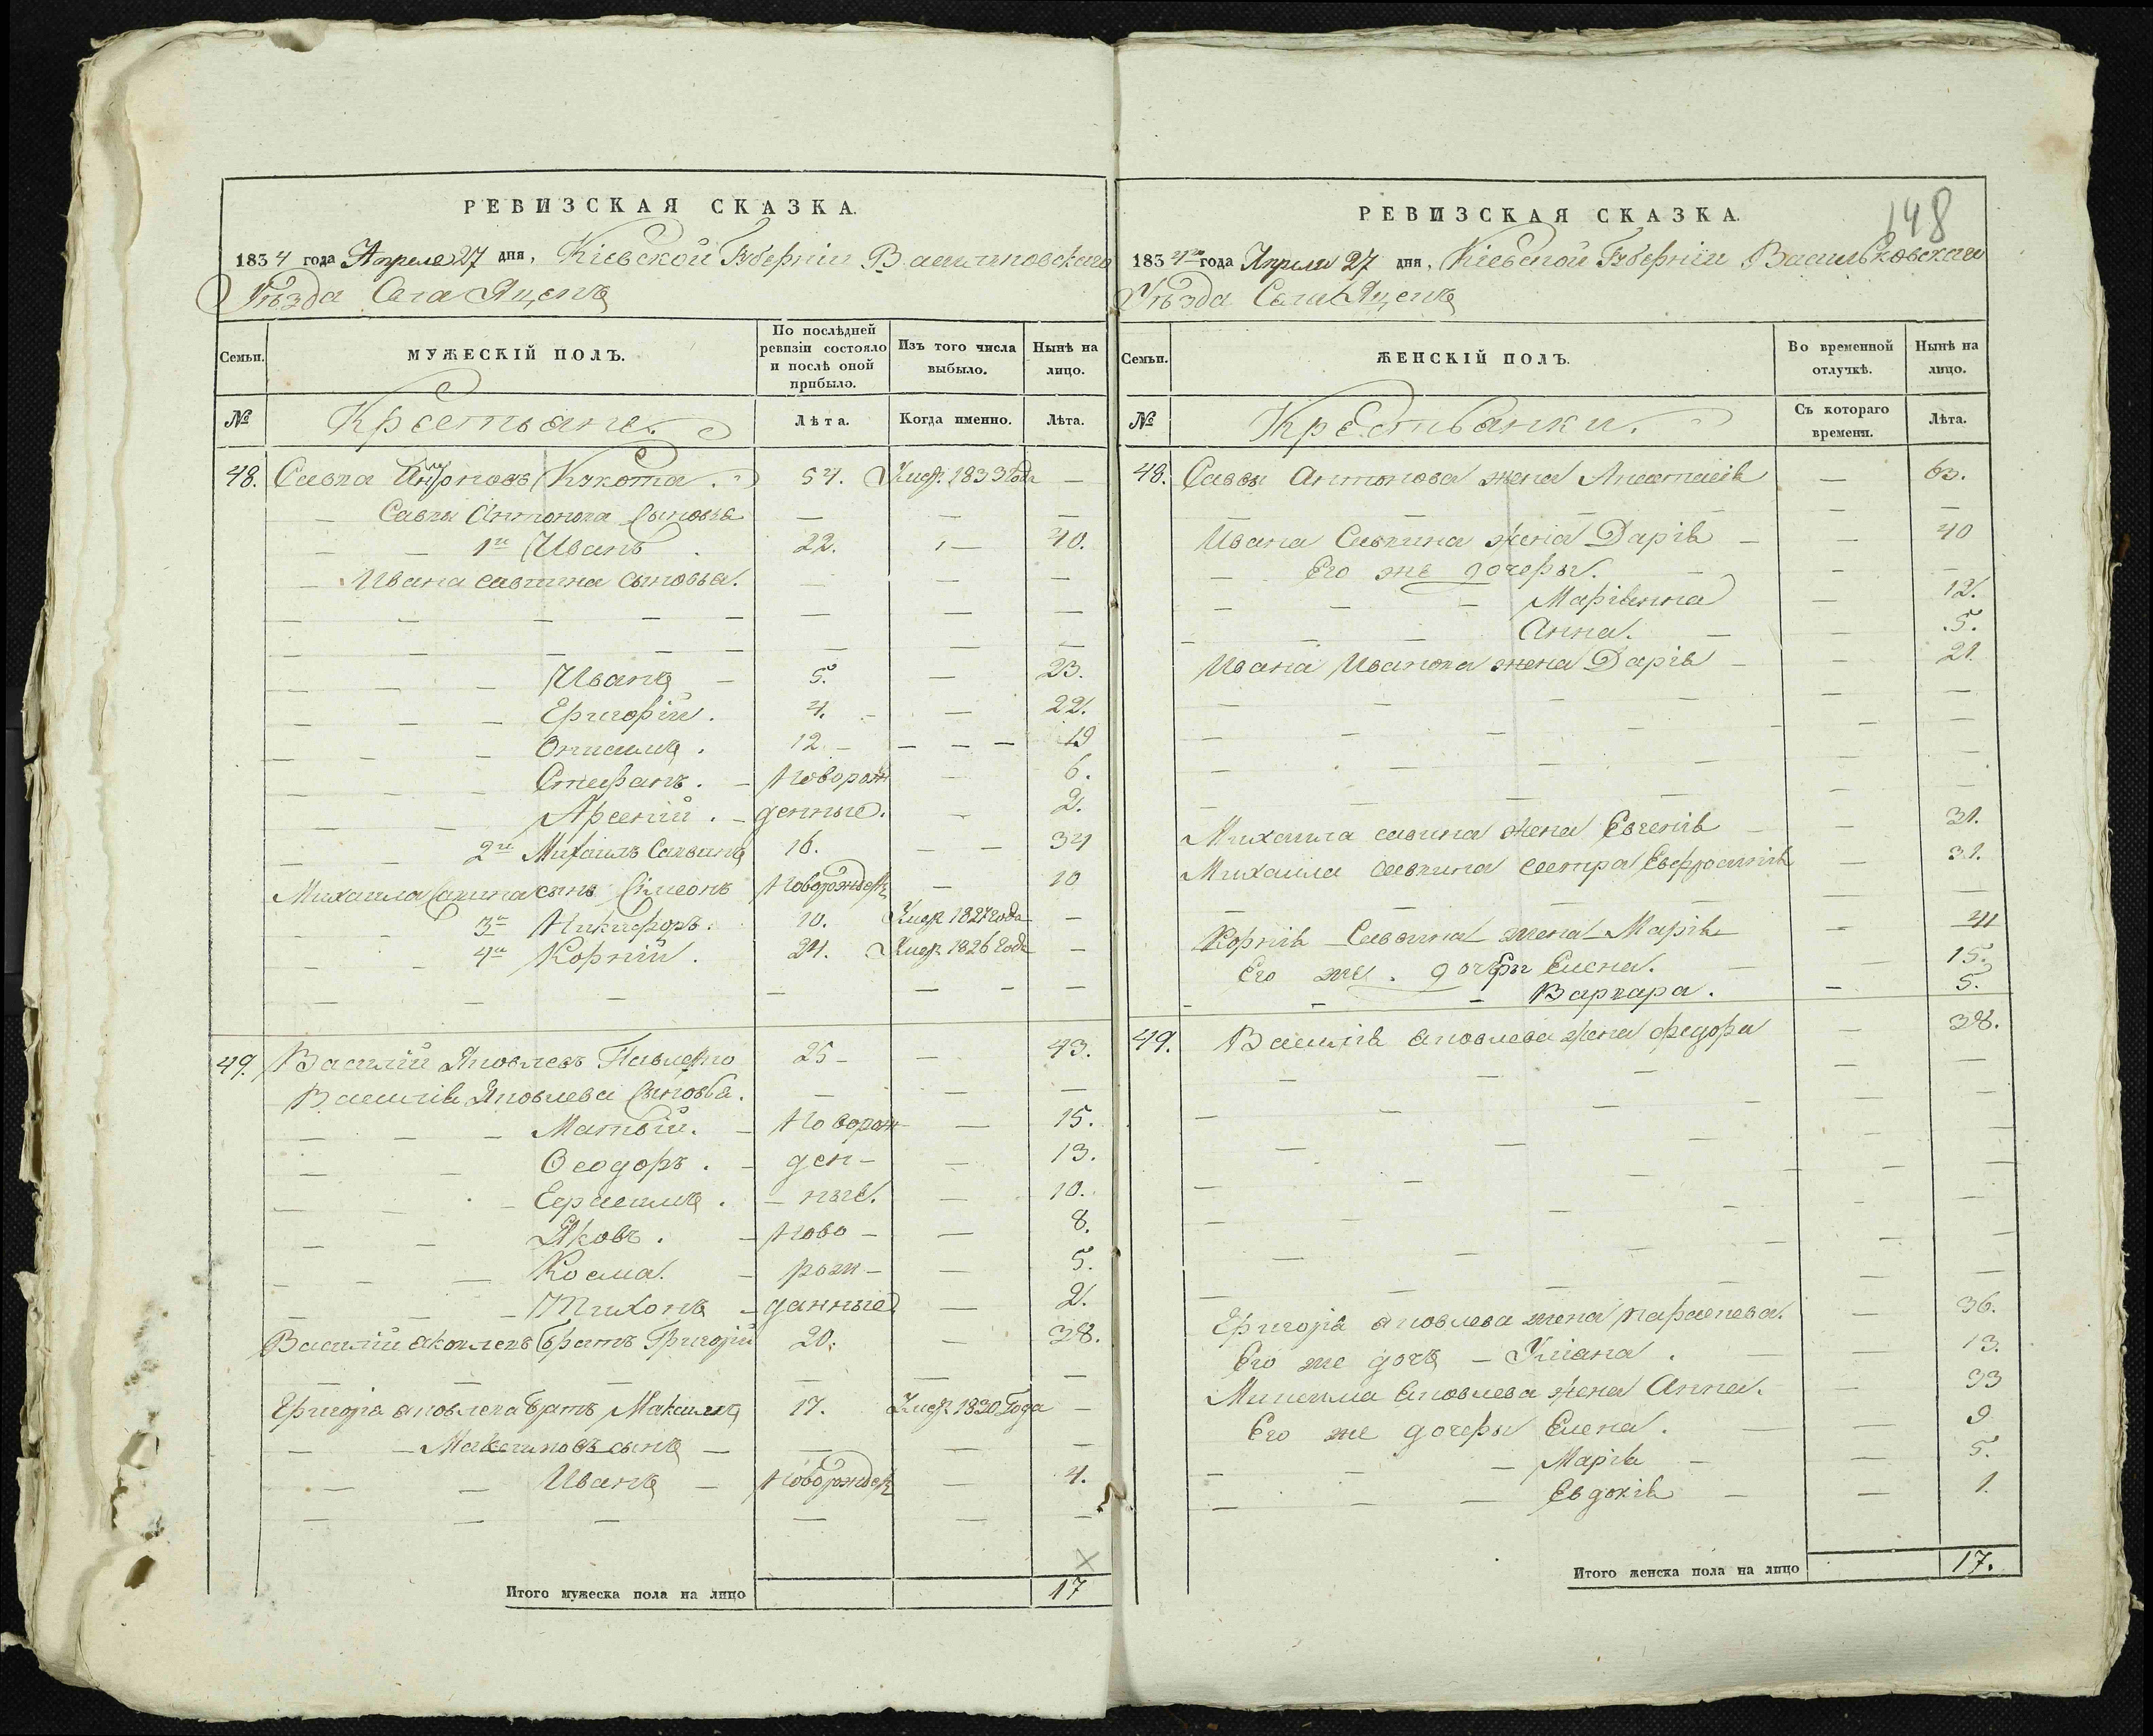 РЕВИЗСКАЯ СКАЗКА.
1834 года Апреля 27 дня, Кіевской Губерніи Васильковскаго
Уѣзда Села Яценъ
Семьи.
МУЖЕСКІЙ ПОЛЪ.
По послѣдней ревизіи состояло и послѣ оной прибыло.
Изъ того числа выбыло.
Нынѣ на лицо.
№
Крестьяне.
Лѣта.
Когда именно.
Лѣта.
48. Савка Антоновъ Кукота. 54. Умер. 1833 года —
Савки Антонова сыновья — — —
1й Иванъ. 22. — 40.
Ивана савкина сыновья. — — —
Иванъ 5. — 23.
Григорій. 4. — 22.
Онисимъ. 12 — 19
Стефанъ. Новорож — 6.
Арсеній. денные. — 2.
2й Михаилъ Савкинъ 16. — 34
Михаила Савкина сынъ Симеонъ Новорожден — 10
3й Никифоръ. 10. Умер. 1827 года —
4й Корній. 24. Умер. 1826 года —
49. Василій Яковлевъ Павленко 25 — 43.
Василія Яковлева Сыновья. — — —
Матвій. Новорож — 15.
Ѳеодоръ. ден — 13.
Герасимъ. ные. — 10.
Яковъ. Ново — 8.
Косма. рож — 5.
Тихонъ данные — 2.
Василій яковлевъ братъ Григорій 20. — 38.
Григорія яковлева братъ Максимъ 17. Умер. 1830 Года —
Максимовъ сынъ — — —
Иванъ Новорожден — 4.
Итого мужеска пола на лицо 17
РЕВИЗСКАЯ СКАЗКА.
148
1834го года Апреля 27 дня, Кіевской Губерніи Васильковскаго
Уѣзда Села Яценъ
Семьи.
ЖЕНСКІЙ ПОЛЪ.
Во временной отлучкѣ.
Нынѣ на лицо.
№
Крестьянки.
Съ котораго времени.
Лѣта.
48. Савы Антонова жена Анастасія — 63.
Ивана Савкина жена Дарія — 40
Его же дочеры. — —
Маріянна — 12.
Анна. — 5.
Ивана Иванова жена Дарія — 21.
Михаила савкина жена Евгенія — 31.
Михаила савкина сестра Евфросинія — 31.
Корнія Савкина жена Марія — 41
Его же дочеры Елена. — 15.
Варвара. — 5.
49. Василія яковлева жена Федора — 38.
Григорія яковлева жена Параскева. — 36.
Его же дочъ — Уліана. — 13.
Максима яковлева жена Анна. — 33
Его же дочеры Елена. — 9
Марія — 5.
Евдокія — 1.
Итого женска пола на лицо 17.